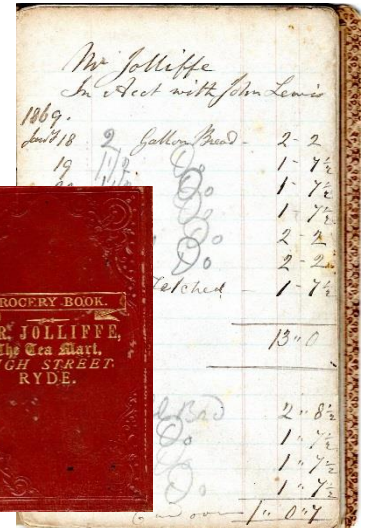 Mr Jolliffe
In Acct with John Lewis
1869.
Jany 18 2 Gallon Bread - 2 - 2
19 Do 1 - 7½
Do 1 - 7½
Do 1 - 7½
Do 2 - 2
Do 2 - 2
Fetched - 1 - 7½
13 " 0
2 " 8½
Do 1 " 7½
Do 1 " 7½
Do 1 " 7½
over 1 " 0 " 7
GROCERY BOOK.
R. JOLLIFFE,
The Tea Mart,
HIGH STREET
RYDE.